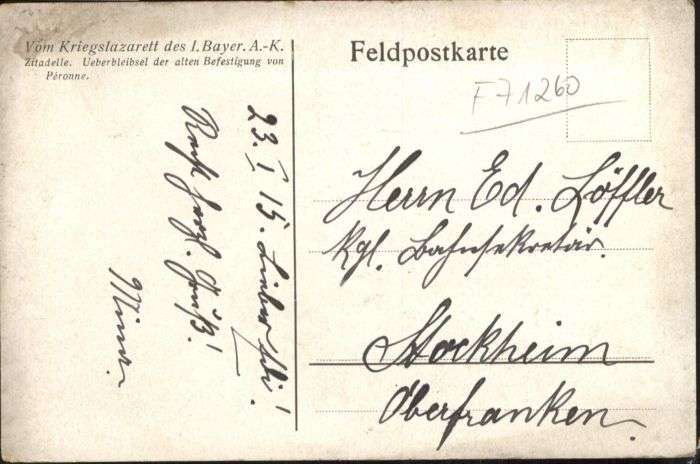 Vom Kriegslazarett des I. Bayer. A.-K.
Zitadelle. Ueberbleibsel der alten Befestigung von
Péronne.
Feldpostkarte
F71260
23. I 15. Lieber
Recht herzl. Grüß!
Herrn Ed. Löffler
Kgl. Bahnsekretär.
Stockheim
Oberfranken.